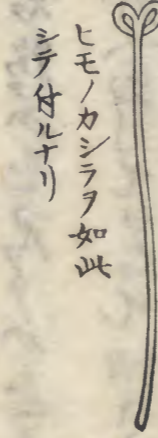 ヒモノカシラヲ如此
シテ付ルナリ